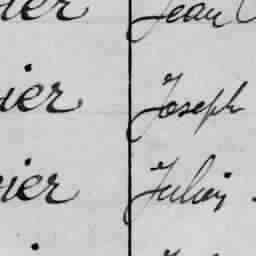 ier Jean
ier Joseph
ier Julien